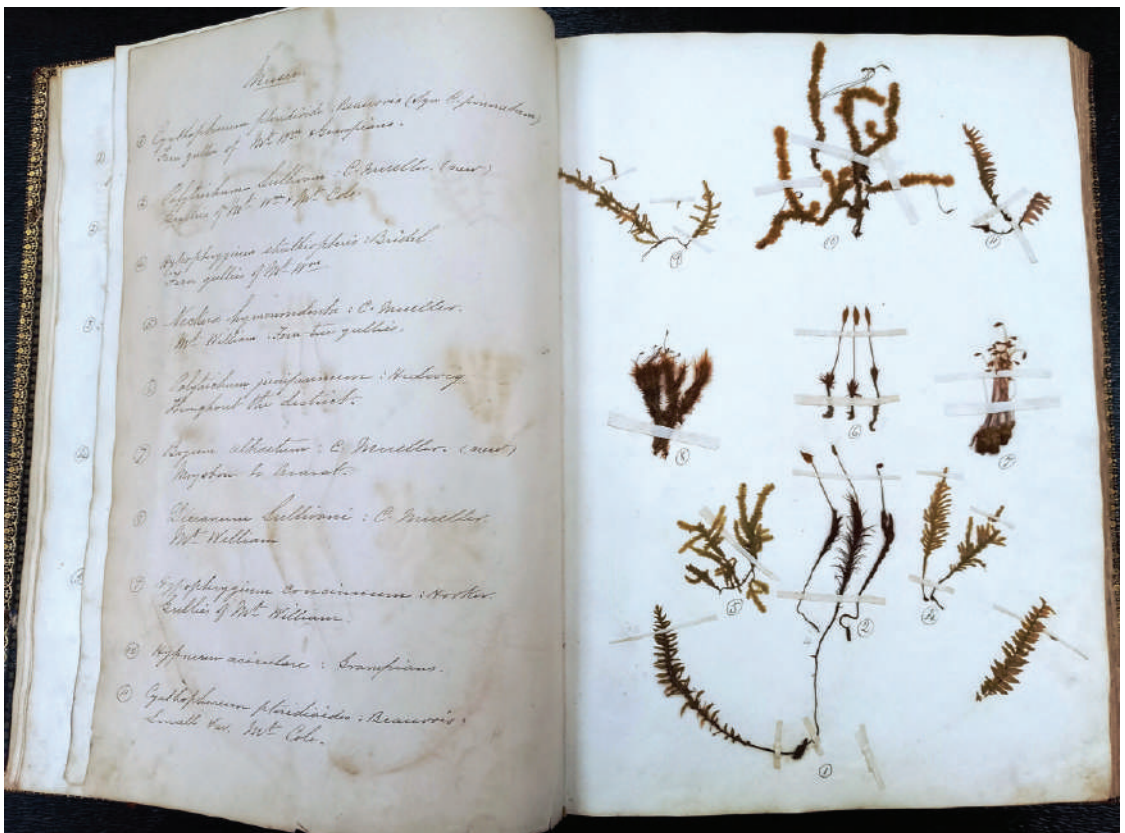 Musci
① Cyathophorum pteridioides : Beauvois (Syn C. pinnatum)
Fern gullies of Mt Wm Grampians.
② Polytrichum Sullivani : C. Mueller. (new)
Gullies of Mt Wm & Mt Cole.
Hypopterygium struthiopteris : Bridel
Fern gullies of Mt Wm
C. Mueller.
Mt William. Fern tree gullies.
Polytrichum juniperinum : Hedwig
Throughout the district.
⑦ C. Mueller. (new)
Moyston to Ararat.
⑧ Dicranum Sullivani : C. Mueller.
Mt William
⑨ Hypopterygium concinnum : Hooker.
Gullies of Mt William.
⑩ Hypnum aciculare : Grampians.
⑪ Cyathophorum pteridioides : Beauvois :
Small var. Mt Cole.
⑨
⑩
⑪
⑧
⑥
⑦
⑤
②
①